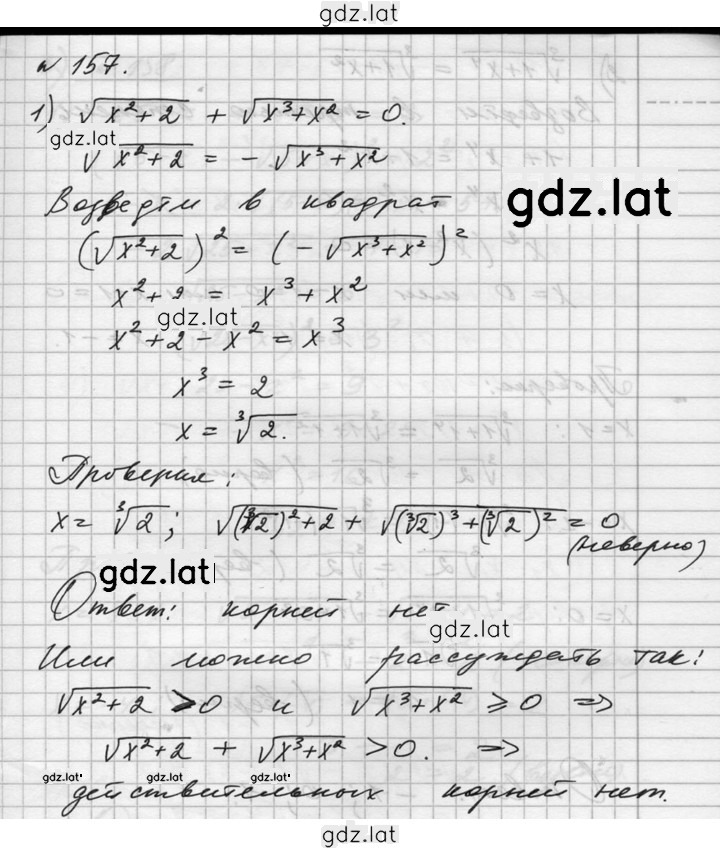 gdz.lat
№ 157.
1) √(x²+2) + √(x³+x²) = 0.
gdz.lat
√(x²+2) = - √(x³+x²)
gdz.lat
Возведём в квадрат
(√(x²+2))² = (- √(x³+x²))²
x²+2 = x³+x²
gdz.lat
x²+2-x² = x³
x³ = 2
x = ∛2.
Проверка:
x = ∛2; √((∛2)²+2) + √((∛2)³+(∛2)²) = 0
(неверно)
gdz.lat
Ответ: корней нет
gdz.lat
Или можно рассуждать так:
√(x²+2) > 0 и √(x³+x²) ⩾ 0 =>
√(x²+2) + √(x³+x²) > 0. =>
gdz.lat gdz.lat gdz.lat
действительных корней нет.
gdz.lat